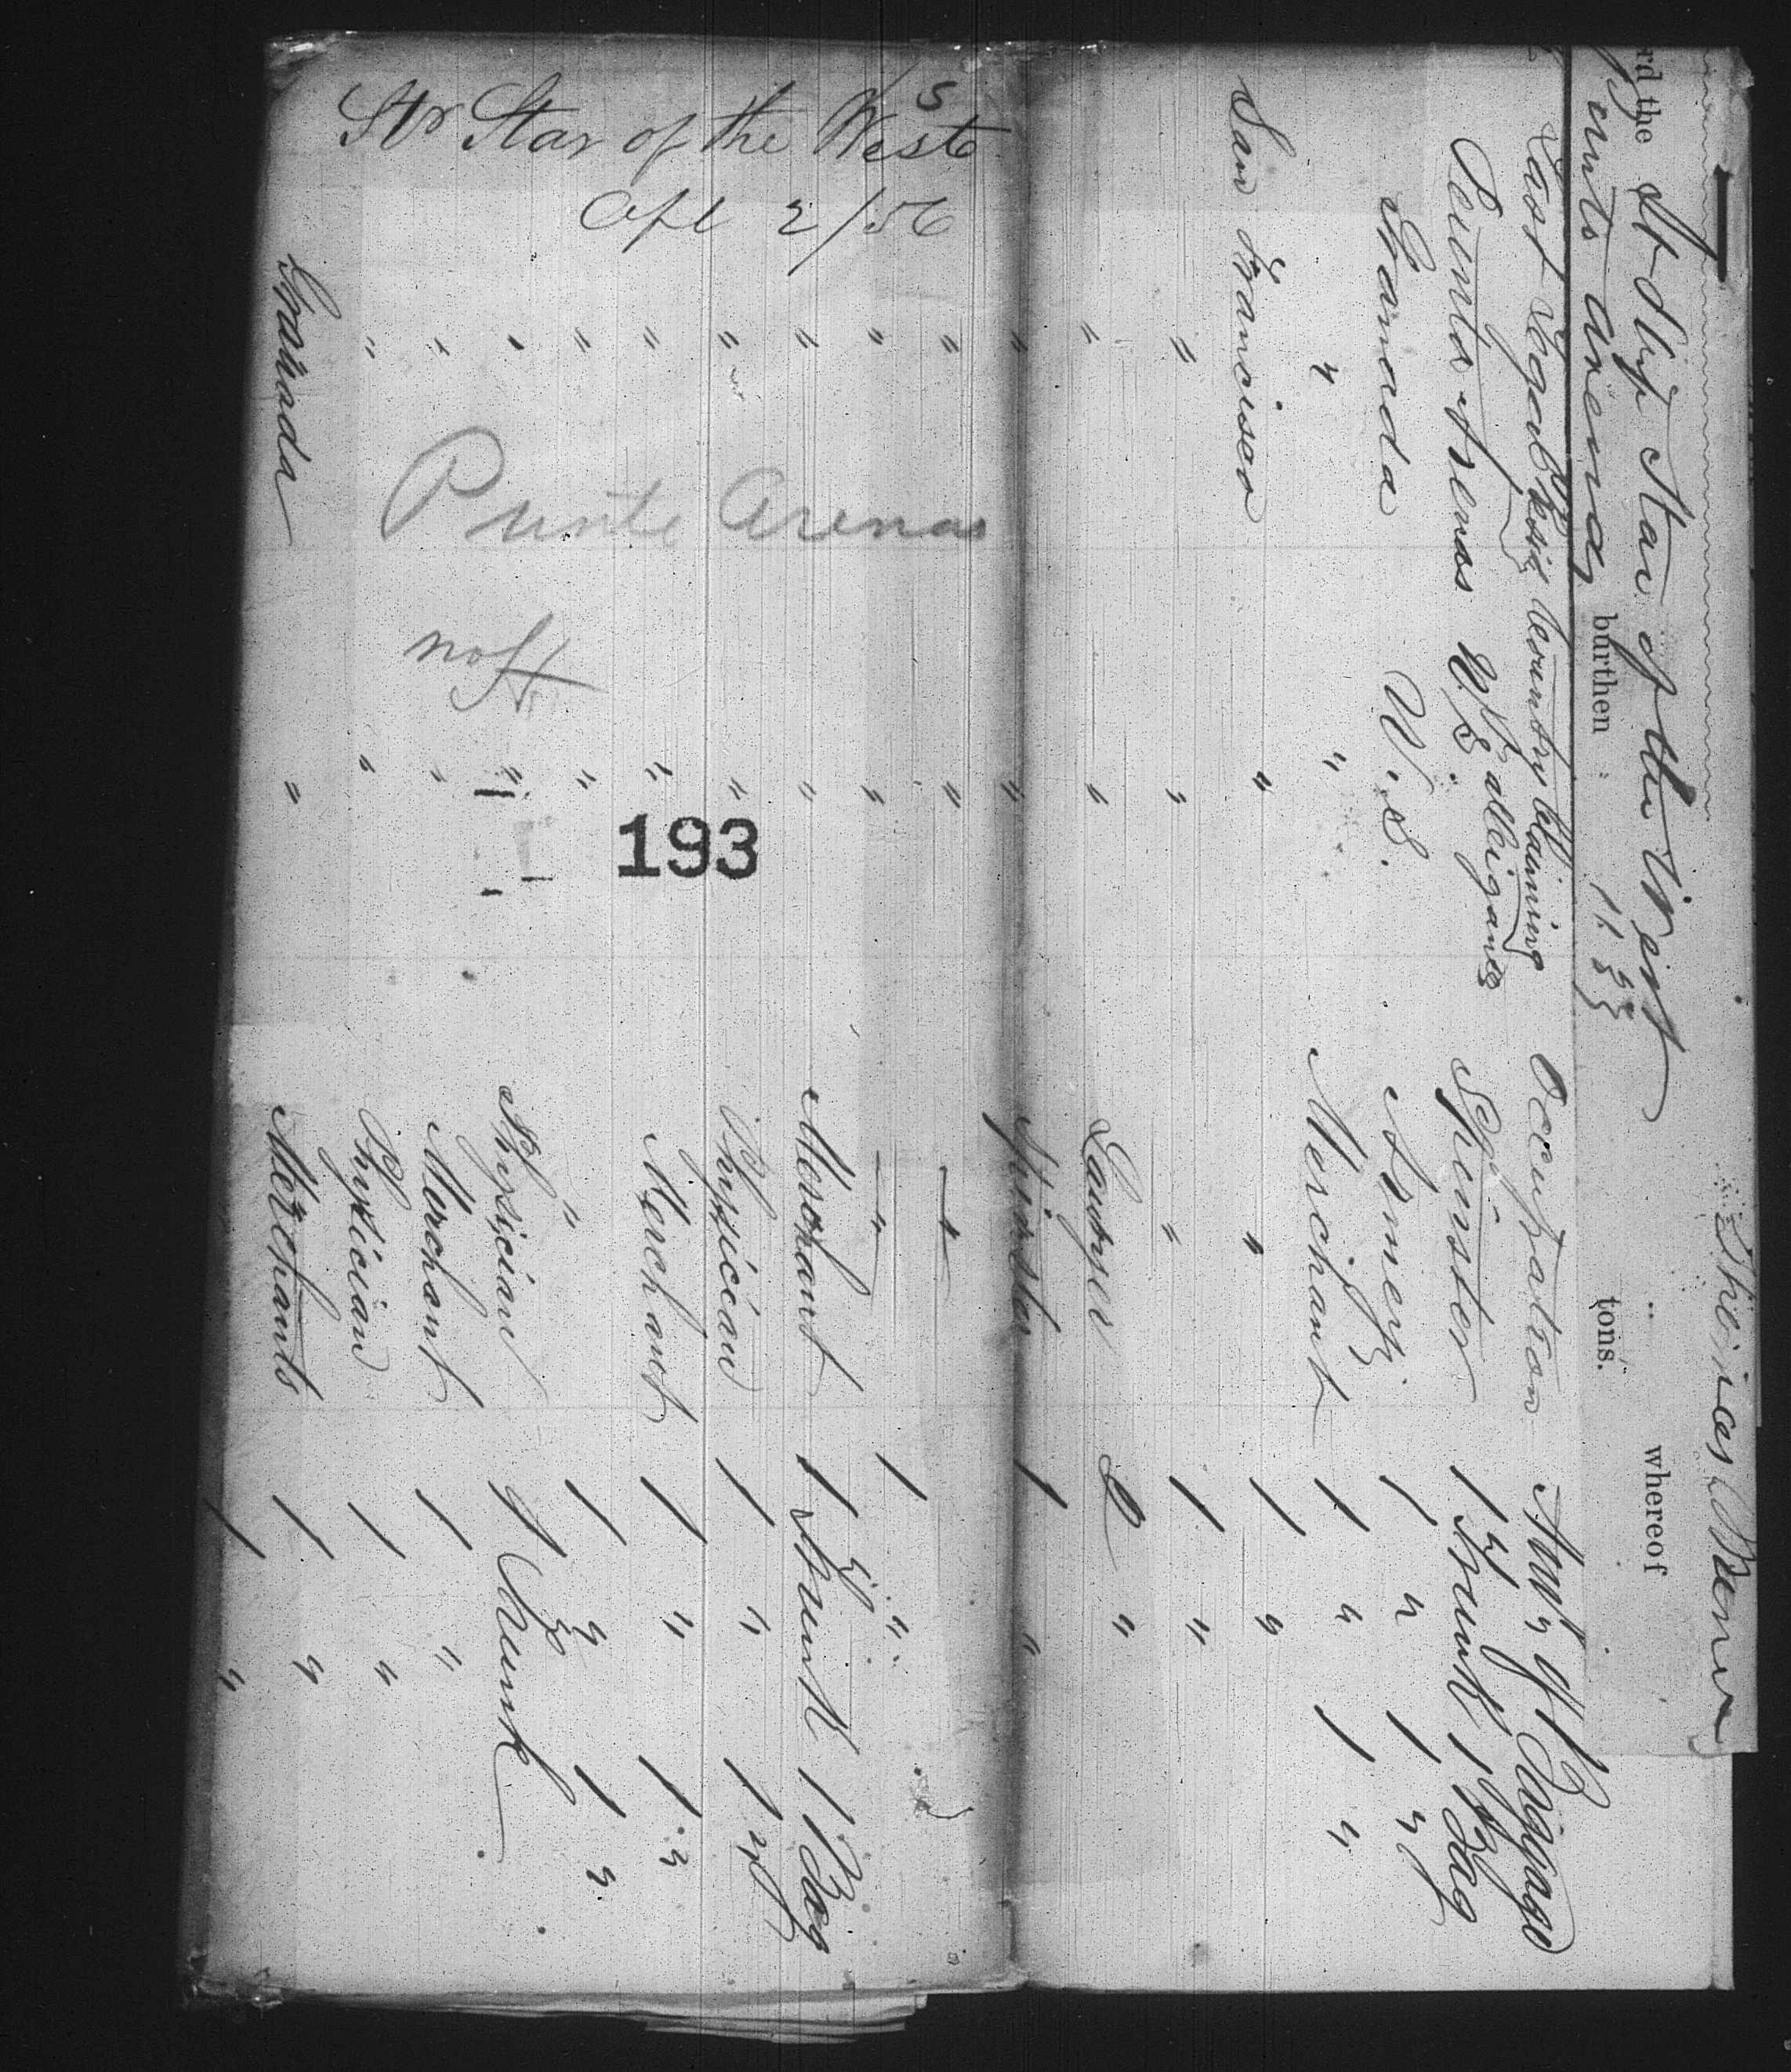 Str Star of the West
Apl 2/56
Punte Arenas
193
rd the St Ship Star of the West whereof
Punto arenas burthen 1133 tons.
Last Legal Resid Country Claiming allegiance Occupation Amt of Baggage
Punta Arenas U.S. Spinster 1 Trunk 1 Bag
Granada U.S. Army 1 " 1 "
" " Merchant 1 " 1 "
San Francisco " " 1 "
" " " 1 "
" " Lawyer 2 "
" " Spinster 1 "
" " "
" " " 1 "
" " Merchant 1 Trunk 1 Bag
" " Physician 1 " 1 "
" " Merchant 1 " 1 "
" " " 1 " 1 "
" " Physician 1 Trunk
" " Merchant 1 "
" " Physician 1 "
Granada " Merchants 1 "
1 "